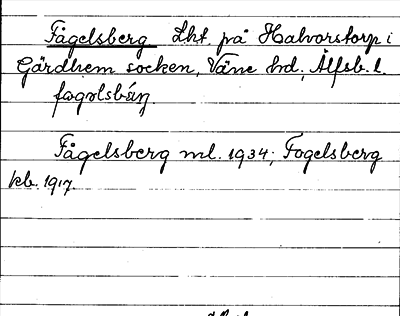 Fågelsberg Lht. på Halvorstorp i
Gärdhem socken, Väne hd., Älfsb. l.
Fågelsberg ml. 1934; Fogelsberg
kb. 1917.